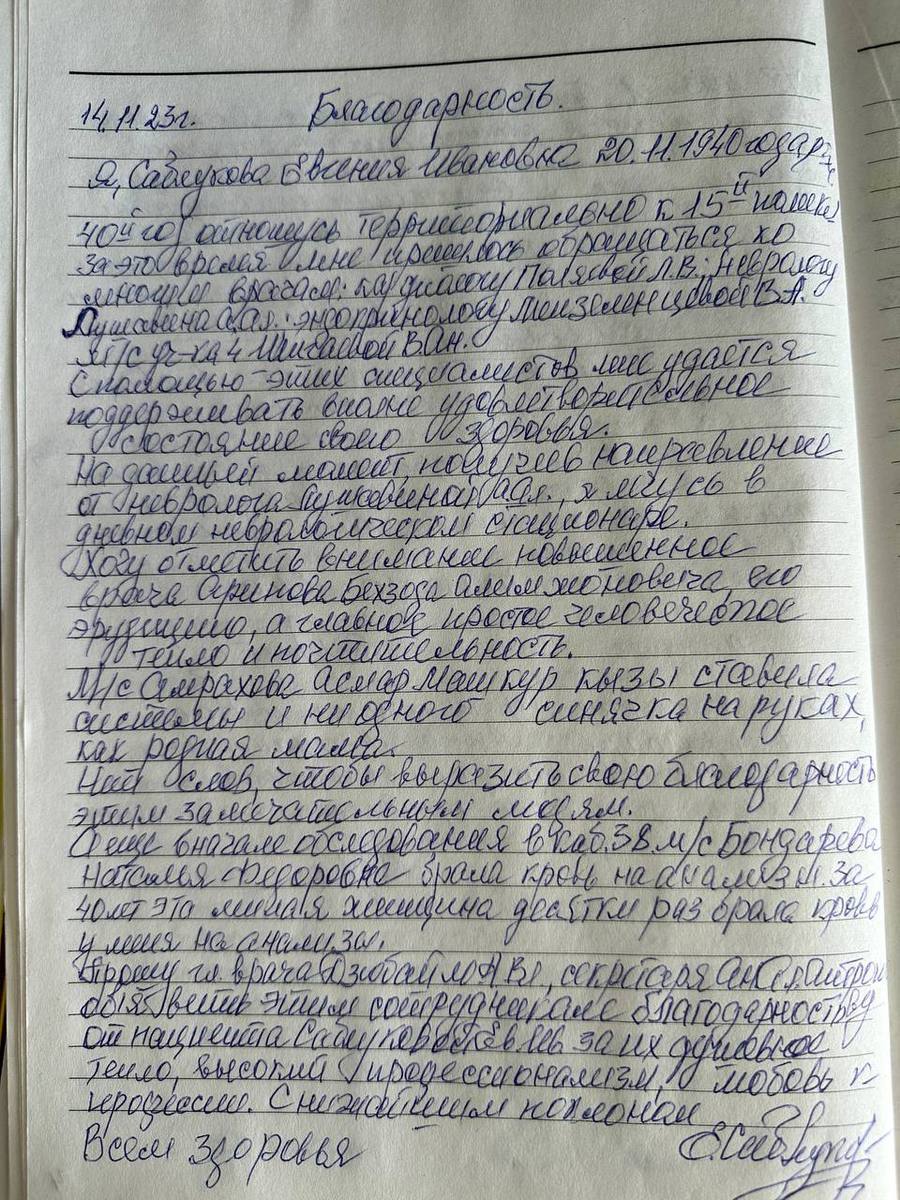 14.11.23г. Благодарность.
Я, Саблукова Евгения Ивановна 20.11.1940 года
относусь территориально к 15й
За это время мне пришлось обращаться ко
многим врачам: кардиологу Поляевой Л.В.; неврологу
эндокринологу Мензеленцевой В.А.
М/с уч-ка 4
С помощью этих специалистов мне удаётся
поддерживать вполне удовлетворительное
состояние своего здоровья.
На данный момент, получив направление
от невролога я лечусь в
дневном неврологическом стационаре.
Хочу отметить внимание повышенное
врача Аринова Бехзода Алимжоновича, его
эрудицию, а главное простое человеческое
тепло и почтительность.
М/с Амрахова Аслар Машкур кызы ставила
системы и ни одного синячка на руках,
как родная мама.
Нет слов, чтобы выразить свою благодарность
этим замечательным людям.
А еще вначале обследования в каб.38 м/с Бондарева
Наталья Федоровна брала кровь на анализы. За
40 лет эта милая женщина десятки раз брала кровь
у меня на анализы.
Прошу гл. врача секретаря
объявить этим сотрудникам благодарность
от пациента Саблуковой Ев Ив за их душевное
тепло, высокий профессионализм, любовь к
профессии. С нижайшим поклоном
Всем здоровья Е.Саблук